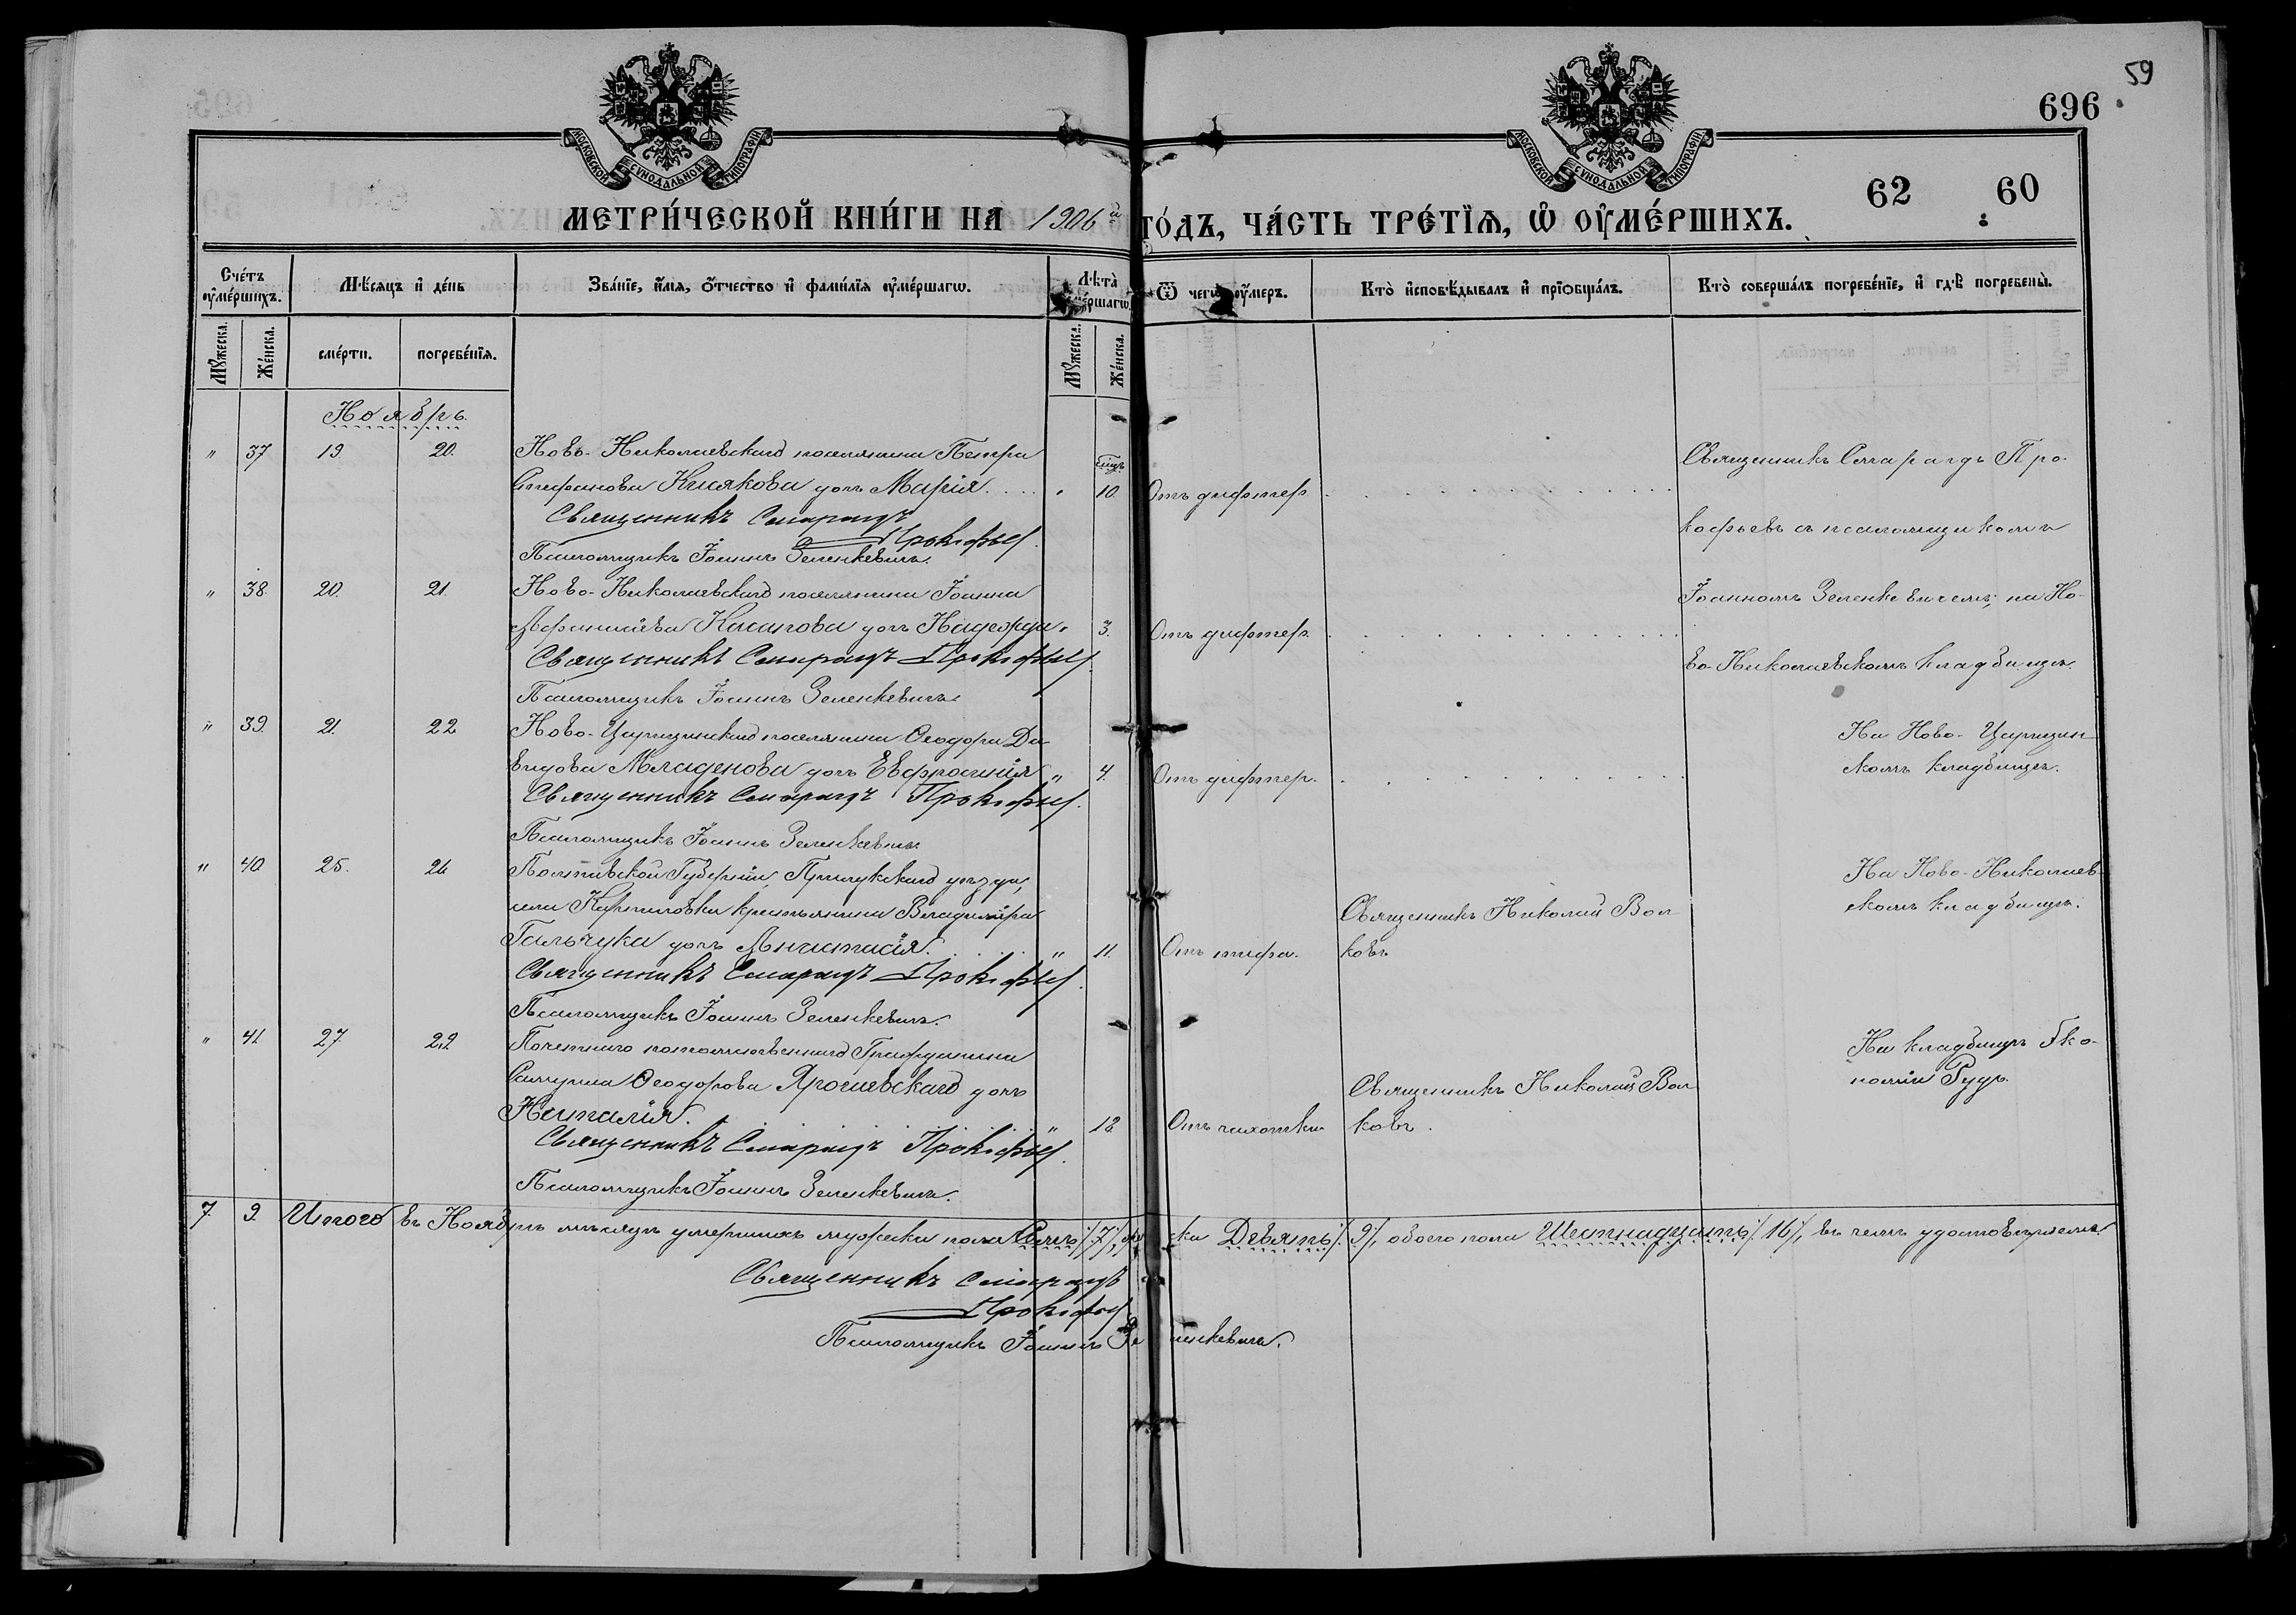 59
696
МОСКОВСКОЙ СУНОДАЛЬНОЙ ТИПОГРАФІИ
МОСКОВСКОЙ СУНОДАЛЬНОЙ ТИПОГРАФІИ
62 60
МЕТРИ́ЧЕСКОЙ КНИ́ГИ НА 1906й ГО́ДЪ, ЧА́СТЬ ТРЕ́ТЇѦ, Ѡ҆ ОУ҆МЕ́РШИХЪ.
Сче́тъ оу҆ме́ршихъ.
Мѣ́сяцъ и҆ де́нь
Зва́нїе, и҆́мя, о҆́тчество и҆ фами́лїя оу҆ме́ршагѡ.
Лѣ́та оу҆ме́ршагѡ.
Ѿ чегѡ̀ оу҆́меръ.
Кто̀ и҆сповѣ́дывалъ и҆ прїобща́лъ.
Кто̀ соверша́лъ погребе́нїе, и҆ гдѣ̀ погребены̀.
Мꙋ́жеска.
Же́нска.
сме́рти.
погребе́нїя.
Мꙋ́жеска.
Же́нска.
Ноябрь.
" 37 19. 20. Ново-Николаевскаго поселянина Петра
Стефанова Кисякова дочь Марія. 10. Отъ дифтер.
Священникъ Смарагдъ Прокофьев
Псаломщикъ Іоаннъ Зеленкевичъ.
Священникъ Смарагдъ Про-
кофьевъ съ псаломщикомъ
Іоанномъ Зеленкевичемъ, на Но-
во-Николаевскомъ кладбищѣ.
" 38. 20. 21. Ново-Николаевскаго поселянина Іоанна
Афанасіева дочь Надежда. 3. Отъ дифтер.
Священникъ Смарагдъ Прокофьев
Псаломщикъ Іоаннъ Зеленкевичъ.
" 39. 21. 22 Ново-Царицинскаго поселянина Ѳеодора Да-
видова Младенова дочь Евфросинія " 4. Отъ дифтер.
Священникъ Смарагдъ Прокофьев.
Псаломщикъ Іоаннъ Зеленкевичъ.
На Ново-Царицин-
скомъ кладбищѣ.
" 40. 25. 26 Полтавской Губерніи, Прилукскаго уѣзда,
села крестьянина Владиміра
Гальчука дочь Анастасія. " 11. Отъ тифа.
Священникъ Смарагдъ Прокофьев.
Псаломщикъ Іоаннъ Зеленкевичъ.
Священникъ Николай Вол-
ковъ
На Ново-Николаев-
скомъ кладбищѣ.
" 41. 27 29 Почетнаго потомственнаго Гражданина
Ѳеодорова дочь
Наталія. " 18. Отъ чахотки
Священникъ Смарагдъ Прокофьев.
Псаломщикъ Іоаннъ Зеленкевичъ.
Священникъ Николай Вол-
ковъ.
На кладбищѣ эко-
номіи Рудь.
7. 9. Итого въ Ноябрѣ мѣсяцѣ умершихъ мужеска пола Семь /7/, женска Девять /9/, обоего пола Шестнадцать /16/, въ чемъ удостовѣряемъ.
Священникъ Смарагдъ
Прокофьев.
Псаломщикъ Іоаннъ Зеленкевичъ.